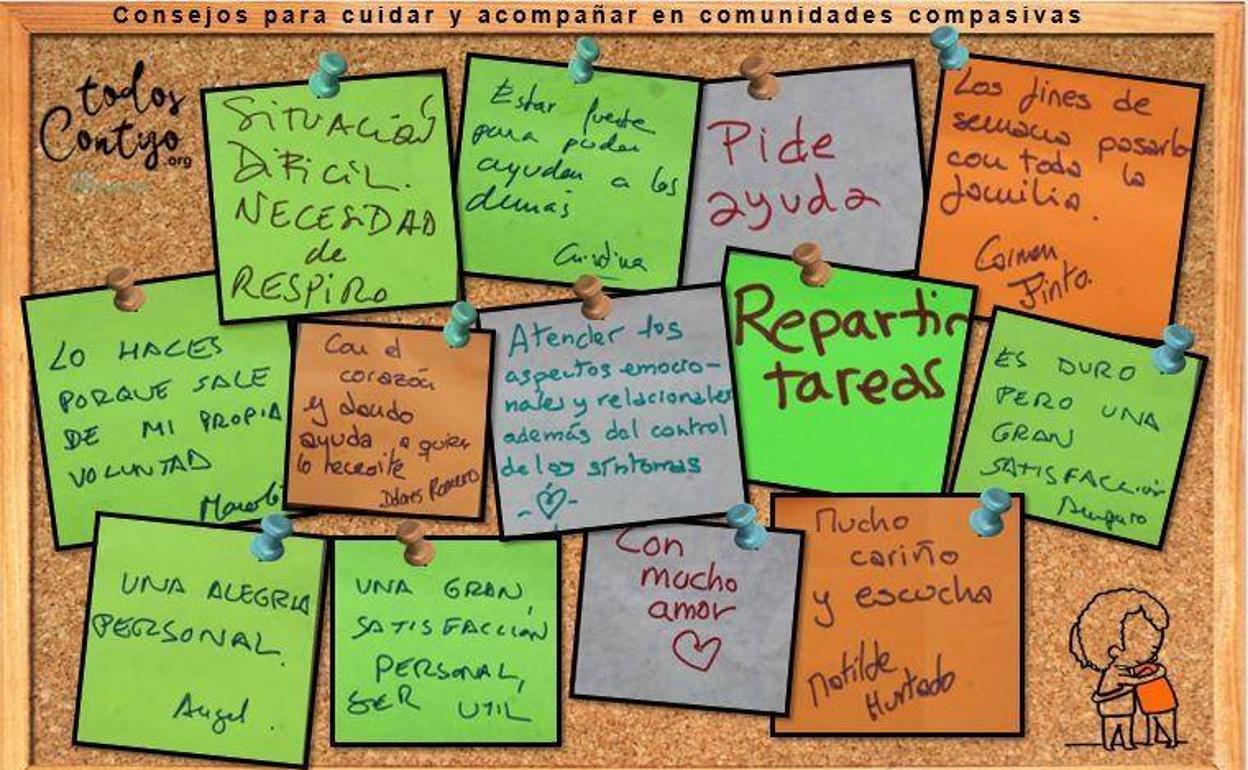 Consejos para cuidar y acompañar en comunidades compasivas
todos
Contigo
.org
SITUACIÓN
DIFICIL.
NECESIDAD
de
RESPIRO
Estar fuerte
para poder
ayudar a los
demás
Cristina
Pide
ayuda
Los fines de
semana pasarlo
con toda la
familia.
Carmen
Pinto.
LO HACES
PORQUE SALE
DE MI PROPIA
VOLUNTAD
Con el
corazón
y dando
ayuda a quien
lo necesite
Dolores Romero
Atender los
aspectos emocio-
nales y relacionales
además del control
de los síntomas
Repartir
tareas
ES DURO
PERO UNA
GRAN
SATISFACCIÓN
Amparo
UNA ALEGRIA
PERSONAL.
Angel.
UNA GRAN,
SATISFACCIÓN
PERSONAL,
SER UTIL
Con
mucho
amor
Mucho
cariño
y escucha
Matilde
Hurtado